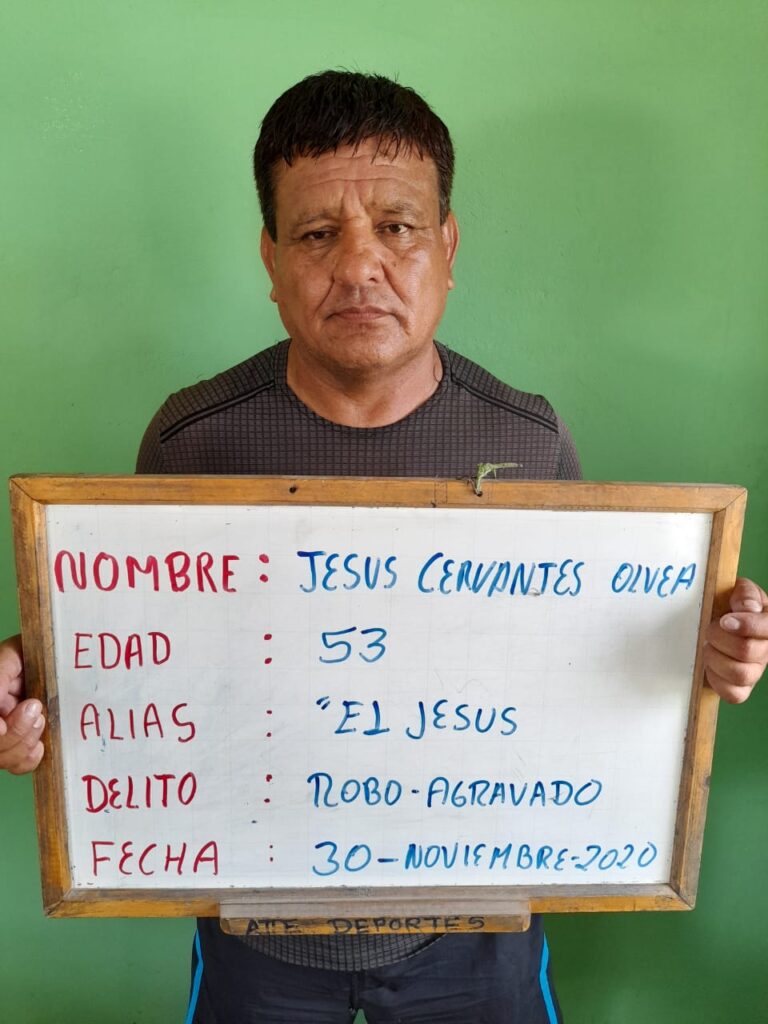 NOMBRE : JESUS CERVANTES OLVEA
EDAD : 53
ALIAS : "EL JESUS
DELITO : ROBO-AGRAVADO
FECHA : 30-NOVIEMBRE-2020
ATTE DEPORTES